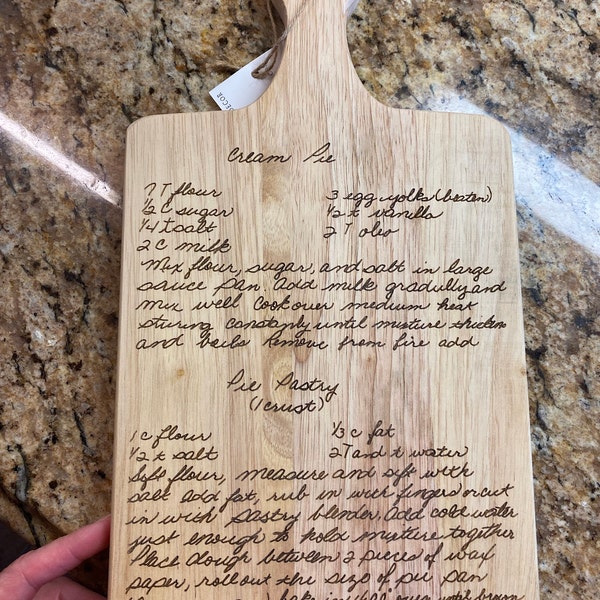 DECOR
Cream Pie
7 T flour
3 egg yolks (beaten)
1/2 C sugar
1/2 t vanilla
1/4 t salt
2 T oleo
2 C milk
Mix flour, sugar, and salt in large
sauce pan. Add milk gradully and
mix well Cook over medium heat
stiring constanly until mixture thickens
and boils Remove from fire add
Pie Pastry
(1 crust)
1 c flour
1/3 c fat
1/2 t salt
2 T and t water
Sift flour, measure and sift with
salt add fat, rub in with fingers or cut
in with pastry blender, add cold water
just enough to hold mixture together
Place dough between 2 pieces of wax
paper, roll out the size of pie pan
bake in oven until brown